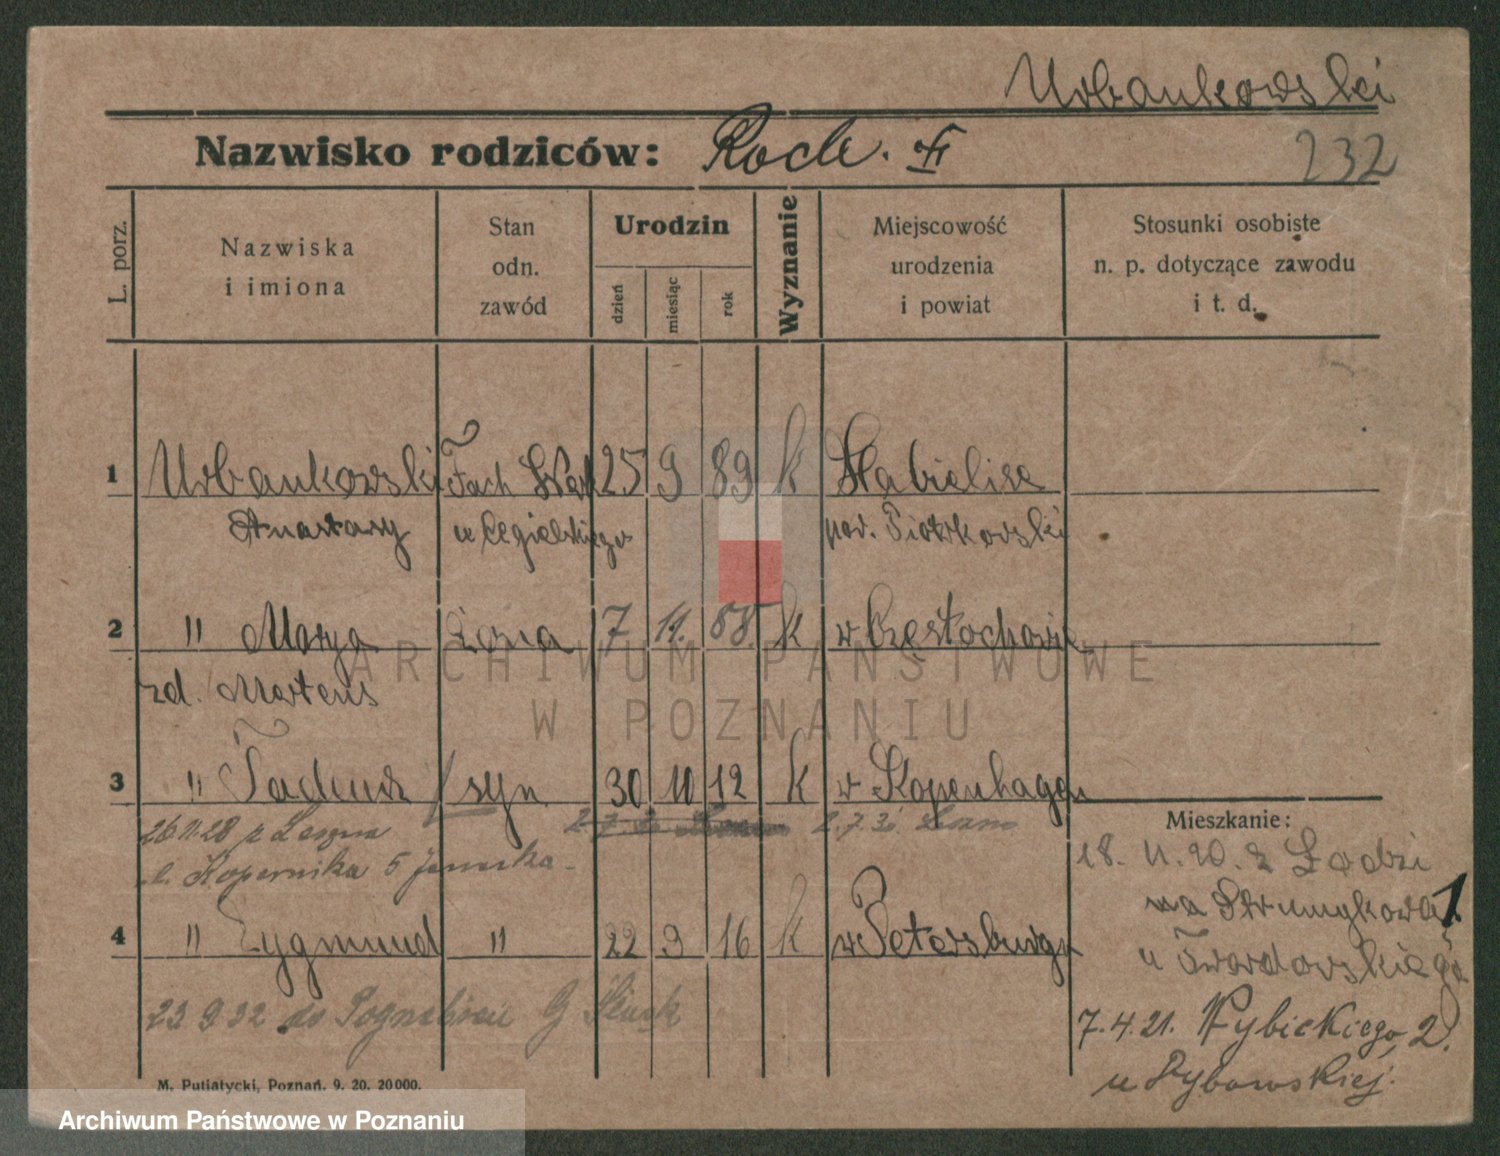 Urbankowski
Nazwisko rodziców: Roch. F
232
L. porz.
Nazwiska
i imiona
Stan
odn.
zawód
Urodzin
dzień
miesiąc
rok
Wyznanie
Miejscowość
urodzenia
i powiat
Stosunki osobiste
n. p. dotyczące zawodu
i t. d.
1 Urbankowski Fach 25 9 89 k
Anastazy u Cegielskiego pow. Piotrkowski
2 " Marya Żona 7 11. 88. k w Częstochowie
zd. Martens
3 " Tadeusz syn 30 10 12 k w Kopenhagen
26.11.28 z Leszna 2.7.30 2.7.30 Leszno
Mieszkanie:
ul. Kopernika 5
18. 11. 20. z Łodzi
na Strumykowa 1
4 " Zygmund " 22 9 16 k w Petersburgu
u Twardowskiego
23 9 32 do G
7.4.21. Wybickiego 2.
u Rybowskiej.
M. Putiatycki, Poznań. 9. 20. 20000.
ARCHIWUM PAŃSTWOWE
W POZNANIU
Archiwum Państwowe w Poznaniu